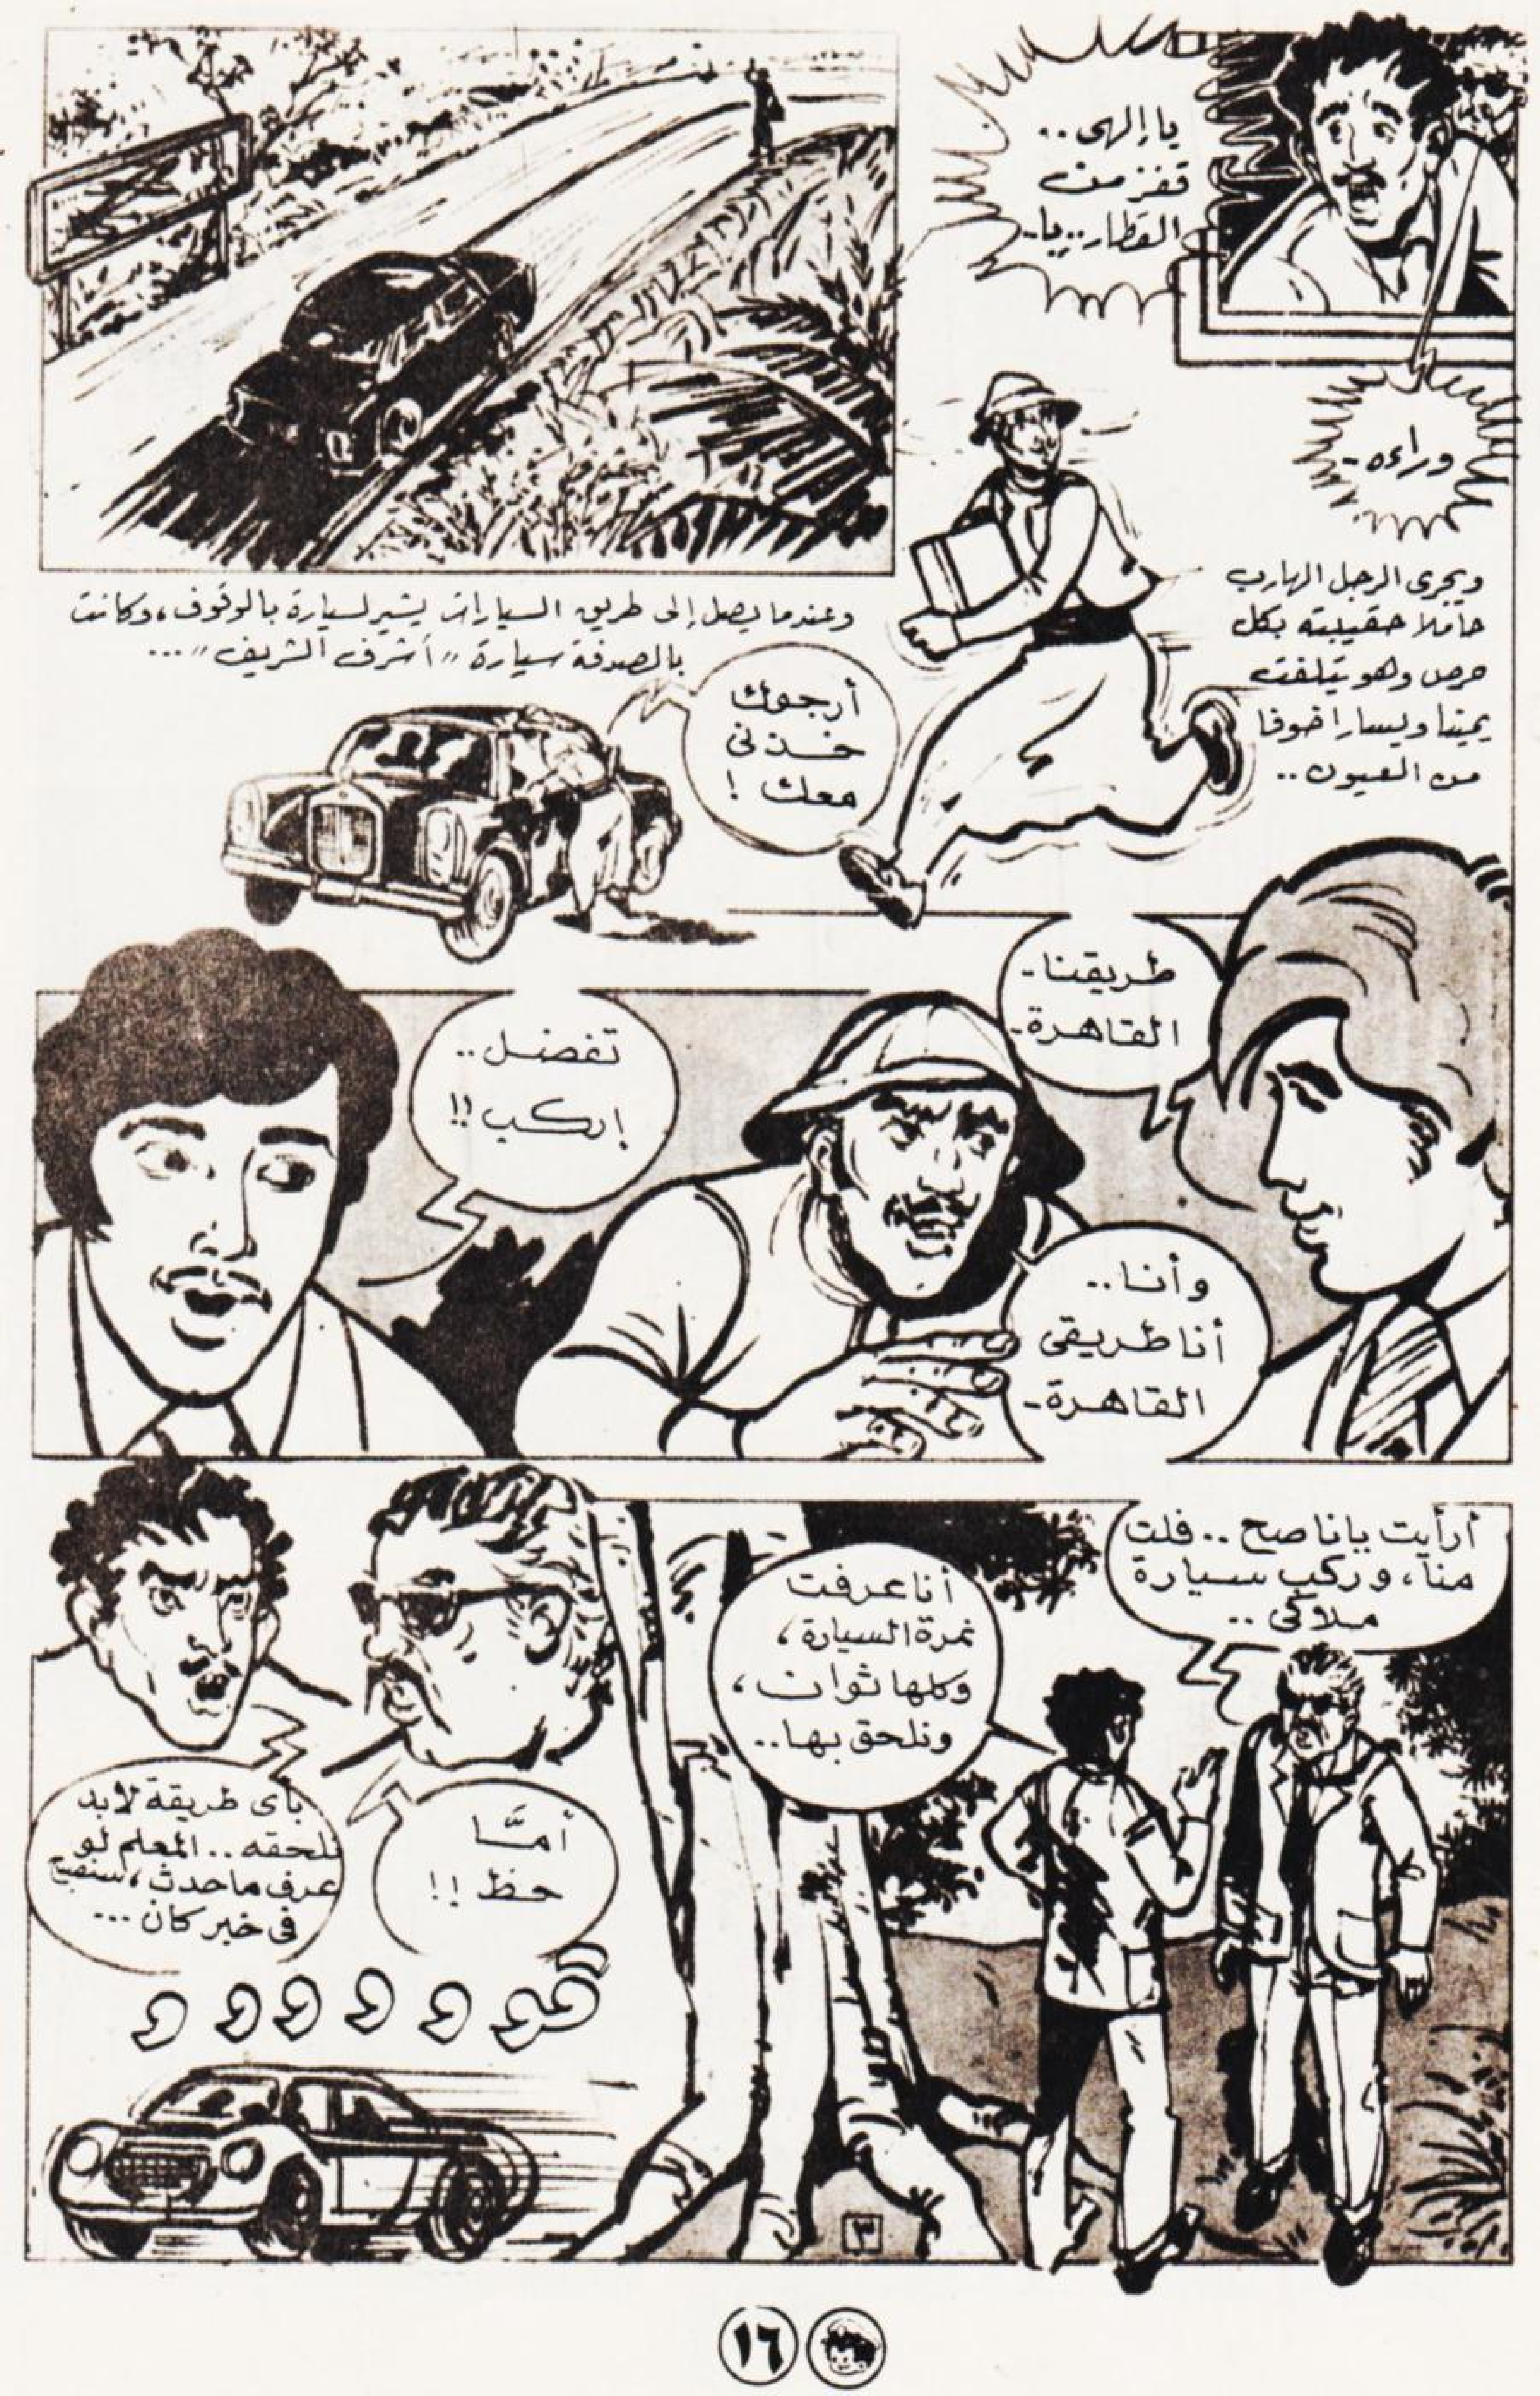 يا إلهى..
قفز من
القطار..يا-
وراءه-
ويجرى الرجل الهارب
حاملا حقيبته بكل
حرص وهو يتلفت
يمينا ويسارا خوفا
من العيون..
وعندما يصل إلى طريق السيارات يشير لسيارة بالوقوف، وكانت
بالصدفة سيارة "أشرف الشريف"...
أرجوك
خذنى
معك!
طريقنا-
القاهرة-
وأنا..
أنا طريقى
القاهرة-
تفضل..
إركب!!
أرأيت ياناصح.. فلت
منا، وركب سيارة
ملاكى..
أنا عرفت
نمرة السيارة،
وكلها ثوان،
ونلحق بها..
أمَّا
حظ!!
بأى طريقة لابد
نلحقه.. المعلم لو
عرف ماحدث، سنصبح
فى خبر كان...
٣
١٦